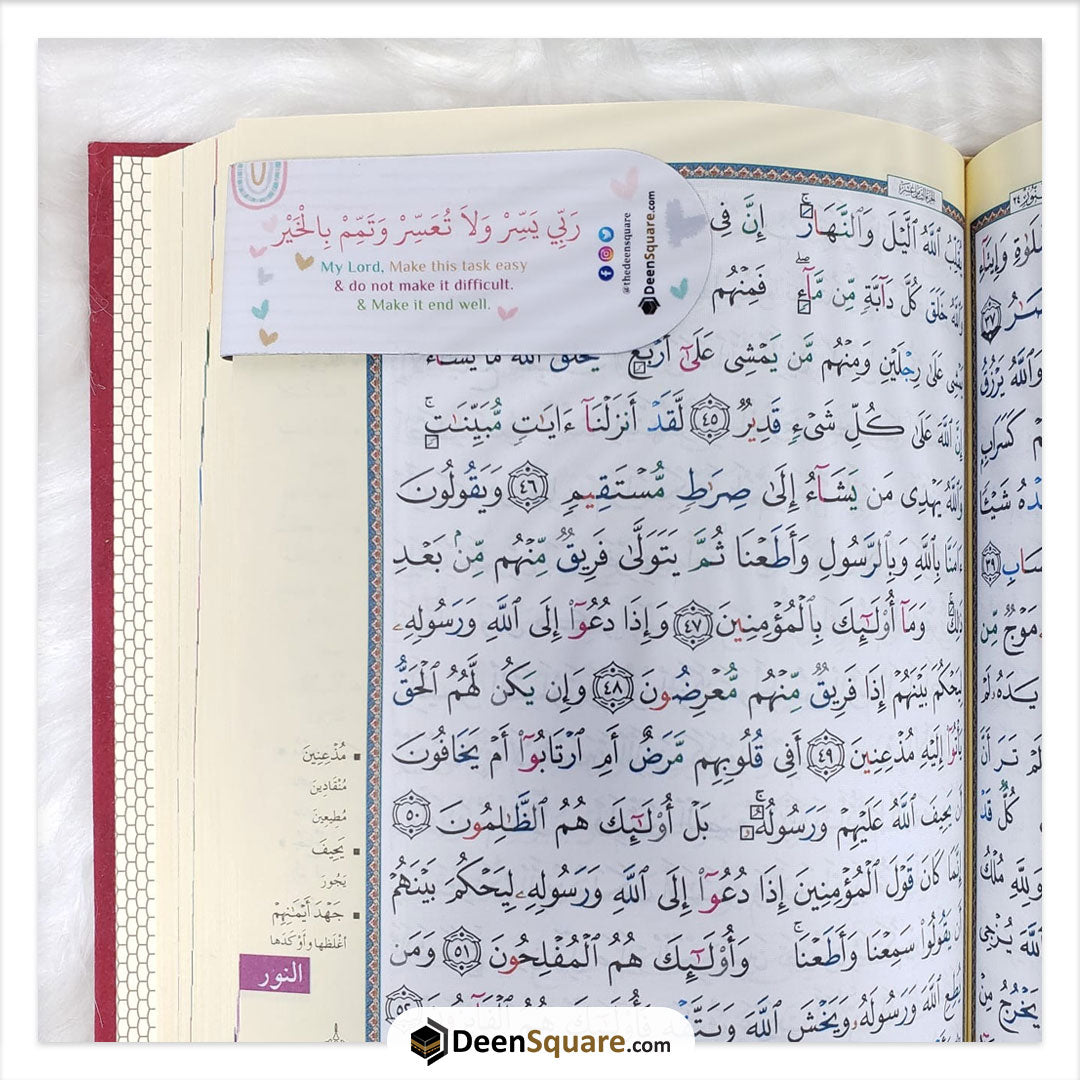 رَبِّي يَسِّرْ وَلاَ تُعَسِّرْ وَتَمِّمْ بِالْخَيْر
My Lord, Make this task easy
& do not make it difficult.
& Make it end well.
@thedeensquare
DeenSquare.com
يُقَلِّبُ ٱللَّهُ ٱلَّيْلَ وَٱلنَّهَارَ إِنَّ فِى
وَٱللَّهُ خَلَقَ كُلَّ دَآبَّةٍ مِّن مَّآءٍ فَمِنْهُم
يَمْشِى عَلَىٰ رِجْلَيْنِ وَمِنْهُم مَّن يَمْشِى عَلَىٰٓ أَرْبَعٍ يَخْلُقُ ٱللَّهُ مَا يَشَآءُ
إِنَّ ٱللَّهَ عَلَىٰ كُلِّ شَىْءٍ قَدِيرٌ ٤٥ لَّقَدْ أَنزَلْنَآ ءَايَـٰتٍ مُّبَيِّنَـٰتٍ
وَٱللَّهُ يَهْدِى مَن يَشَآءُ إِلَىٰ صِرَٰطٍ مُّسْتَقِيمٍ ٤٦ وَيَقُولُونَ
ءَامَنَّا بِٱللَّهِ وَبِٱلرَّسُولِ وَأَطَعْنَا ثُمَّ يَتَوَلَّىٰ فَرِيقٌ مِّنْهُم مِّنۢ بَعْدِ
ذَٰلِكَ وَمَآ أُو۟لَـٰٓئِكَ بِٱلْمُؤْمِنِينَ ٤٧ وَإِذَا دُعُوٓا۟ إِلَى ٱللَّهِ وَرَسُولِهِۦ
لِيَحْكُمَ بَيْنَهُمْ إِذَا فَرِيقٌ مِّنْهُم مُّعْرِضُونَ ٤٨ وَإِن يَكُن لَّهُمُ ٱلْحَقُّ
يَأْتُوٓا۟ إِلَيْهِ مُذْعِنِينَ ٤٩ أَفِى قُلُوبِهِم مَّرَضٌ أَمِ ٱرْتَابُوٓا۟ أَمْ يَخَافُونَ
أَن يَحِيفَ ٱللَّهُ عَلَيْهِمْ وَرَسُولُهُۥ بَلْ أُو۟لَـٰٓئِكَ هُمُ ٱلظَّـٰلِمُونَ ٥٠
إِنَّمَا كَانَ قَوْلَ ٱلْمُؤْمِنِينَ إِذَا دُعُوٓا۟ إِلَى ٱللَّهِ وَرَسُولِهِۦ لِيَحْكُمَ بَيْنَهُمْ
أَن يَقُولُوا۟ سَمِعْنَا وَأَطَعْنَا وَأُو۟لَـٰٓئِكَ هُمُ ٱلْمُفْلِحُونَ ٥١ وَمَن
يُطِعِ ٱللَّهَ وَرَسُولَهُۥ وَيَخْشَ ٱللَّهَ وَيَتَّقْهِ فَأُو۟لَـٰٓئِكَ هُمُ ٱلْفَآئِزُونَ ٥٢
مُذْعِنِينَ
مُنْقَادِينَ
مُطِيعِينَ
يَحِيفَ
يَجُورَ
جَهْدَ أَيْمَـٰنِهِمْ
أَغْلَظَها وَأَوْكَدَها
النور
DeenSquare.com